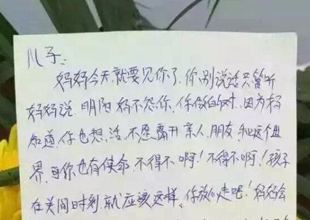 儿子:
妈妈今天就要见你了,你别说话只管听
妈妈说,明明妈不怨你,你做的对,因为妈
知道,你也想活,不愿离开亲人,朋友和这个世
界,可你也有使命,不得不啊!不得不啊!孩子
在关间时刻就应该这样,你放心走吧!妈妈会